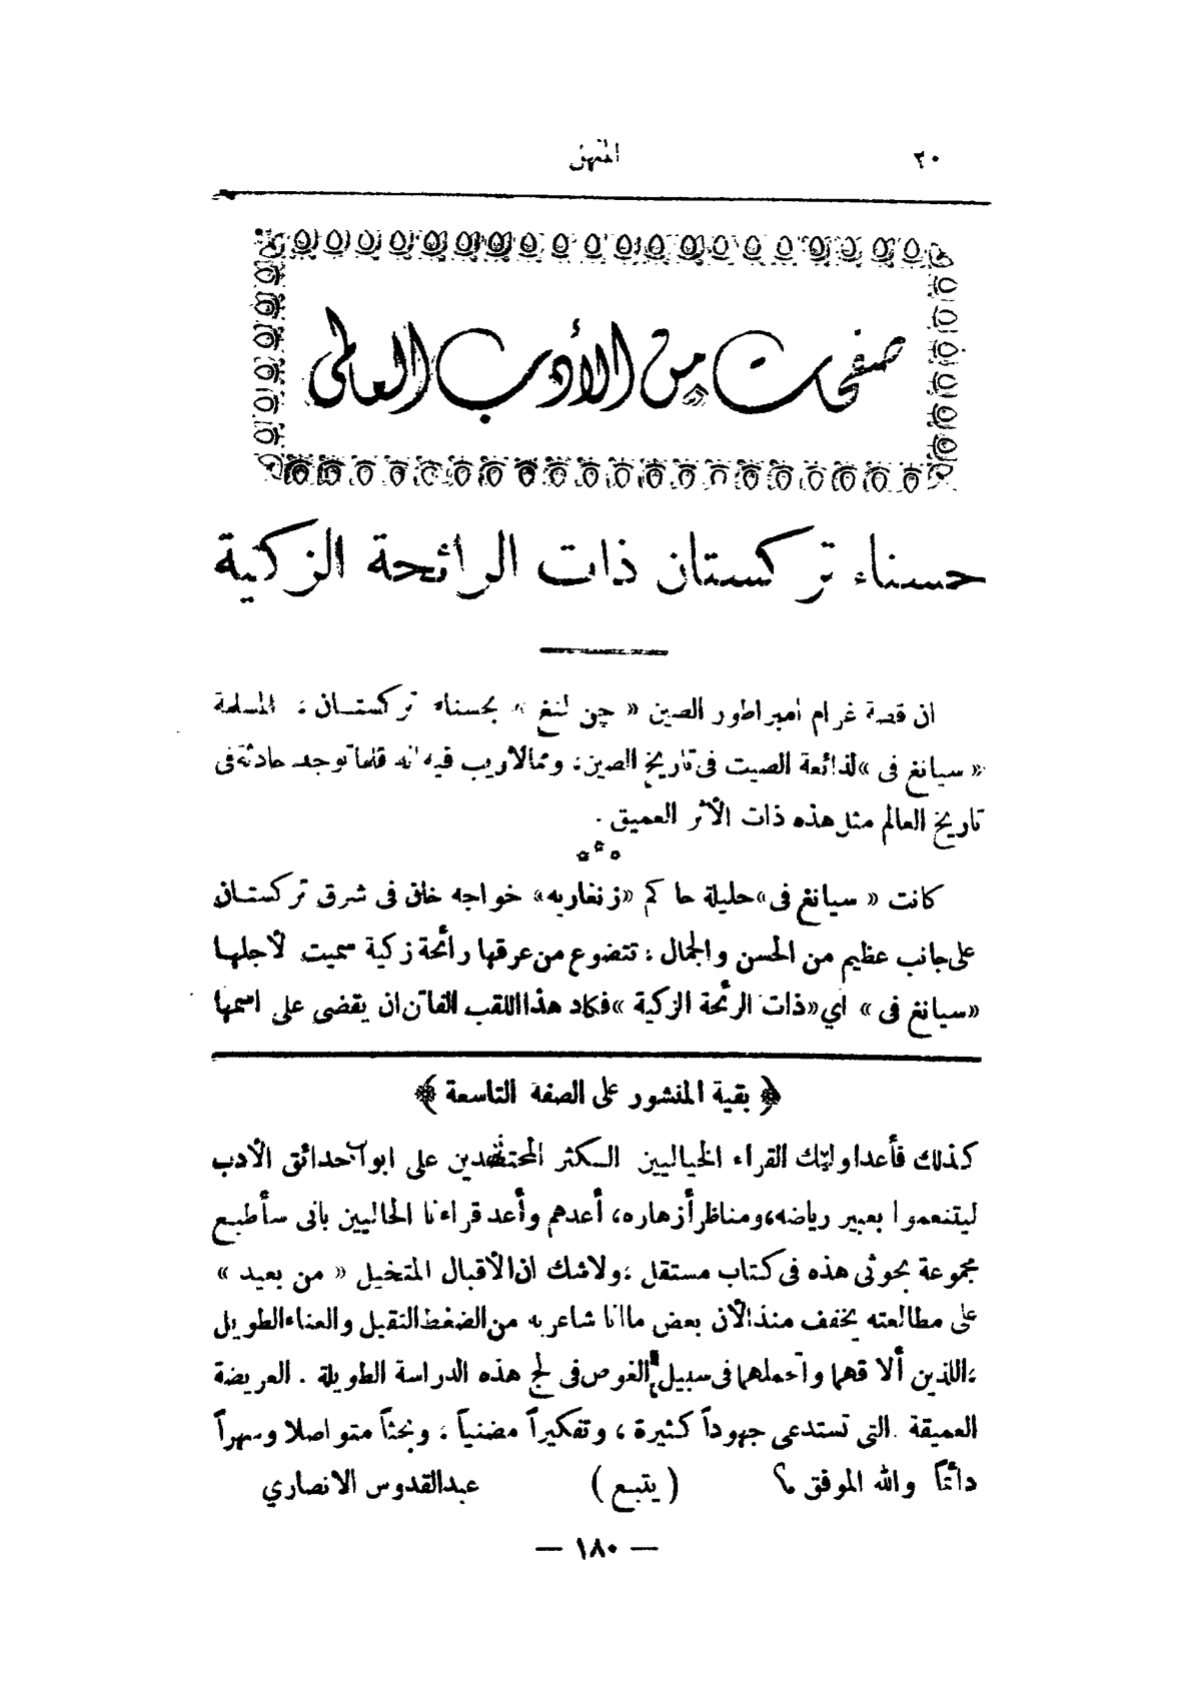 ٢٠
المنهل
صفحات من الأدب العالمى
حسناء تركستان ذات الرائحة الزكية
ان قصة غرام امبراطور الصين « چن لنغ » بحسناء تركستان ، المسلمة
« سيانغ فى » لذائعة الصيت فى تاريخ الصين ، ومما لاريب فيه انه قلما توجد حادثة فى
تاريخ العالم مثل هذه ذات الأثر العميق .
كانت « سيانغ فى » حليلة حاكم « زنغاريه » خواجه خان فى شرق تركستان
على جانب عظيم من الحسن والجمال ، تتضوع من عرقها رائحة زكية سميت لأجلها
« سيانغ فى » اي « ذات الرئحة الزكية » فكاد هذا اللقب الفاتن ان يقضى على اسمها
﴿ بقية المنشور على الصفة التاسعة ﴾
كذلك فأعد اولئك القراء الخياليين الكثر المحتشدين على ابواب حدائق الأدب
ليتنعموا بعبير رياضه، ومناظر أزهاره، أعدهم وأعد قراءنا الحاليين بانى سأطبع
مجموعة بحوثى هذه فى كتاب مستقل ، ولاشك ان الأقبال المتخيل « من بعيد »
على مطالعته يخفف منذ الآن بعض ما انا شاعر به من الضغط الثقيل والعناء الطويل
، اللذين ألاقهما وأتحملهما فى سبيل الغوص فى لج هذه الدراسة الطويلة . العريضة
العميقة . التى تستدعى جهوداً كثيرة ، وتفكيراً مضنياً ، وبحثاً متواصلا وسهراً
دائماً والله الموفق ؟ ( يتبع ) عبدالقدوس الانصاري
— ١٨٠ —